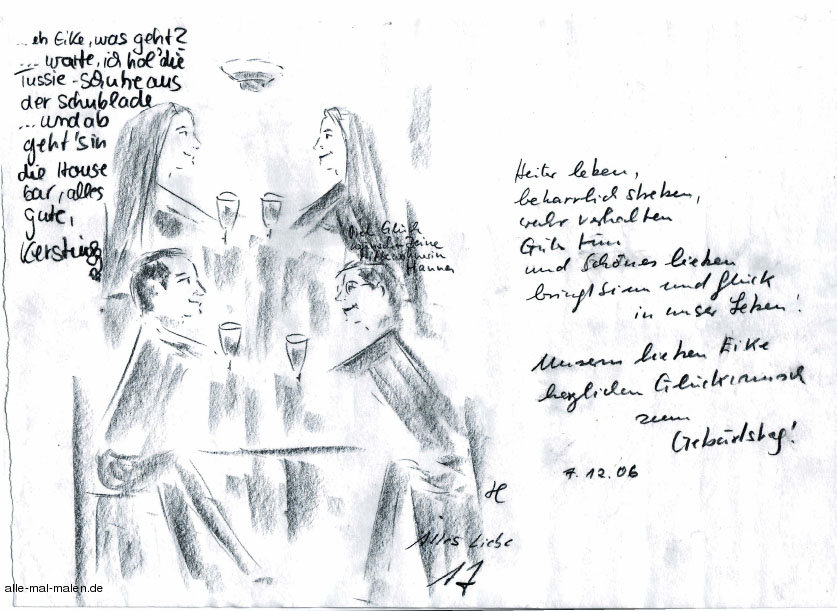 ...eh Eike, was geht?
... warte, ich hol' die
Tussie-Schuhe aus
der Schublade
... und ab
geht's in
die House
bar, alles
gute,
Kerstin
Viel Glück
wünschen Deine
Hanna
Heiter leben,
beharrlich streben,
verhalten
Gutes tun
und Schönes lieben
bringt Sinn und Glück
in unser Leben!
Unserm lieben Eike
herzlichen Glückwunsch
zum
Geburtstag!
7.12.06
H
Alles Liebe
alle-mal-malen.de